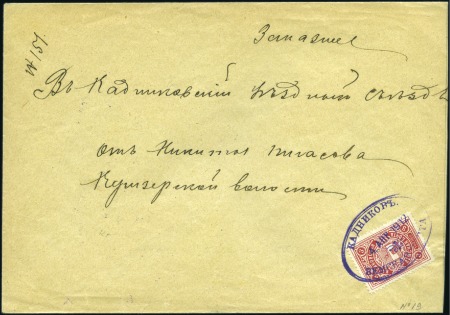 № 151.
Заказное
Въ Кадниковскій Уѣздной Съѣздъ
отъ Никиты Власова
Кумзерской волости
КАДНИКОВЪ.
ЗЕМСКАЯ
№19